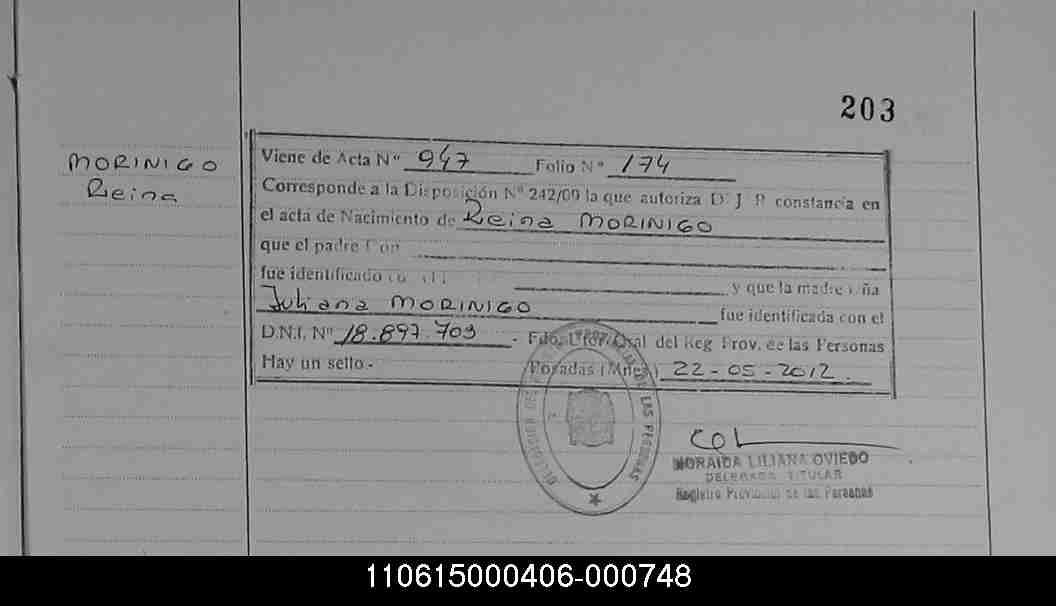 203
MORINIGO
Reina
Viene de Acta Nº 947 Folio Nº 174
Corresponde a la Disposición Nº 242/09 la que autoriza D. J. P. constancia en
el acta de Nacimiento de Reina MORINIGO
que el padre Don
fue identificado y que la madre Doña
Juliana MORINIGO fue identificada con el
D.N.I. Nº 18.897.709 - Fdo. Dtor. Gral del Reg Prov. de las Personas
Hay un sello.- Posadas (Mnes) 22-05-2012.
DE LAS PERSONAS
MORAIDA LILIANA OVIEDO
DELEGADA TITULAR
Registro Provincial de las Personas
110615000406-000748